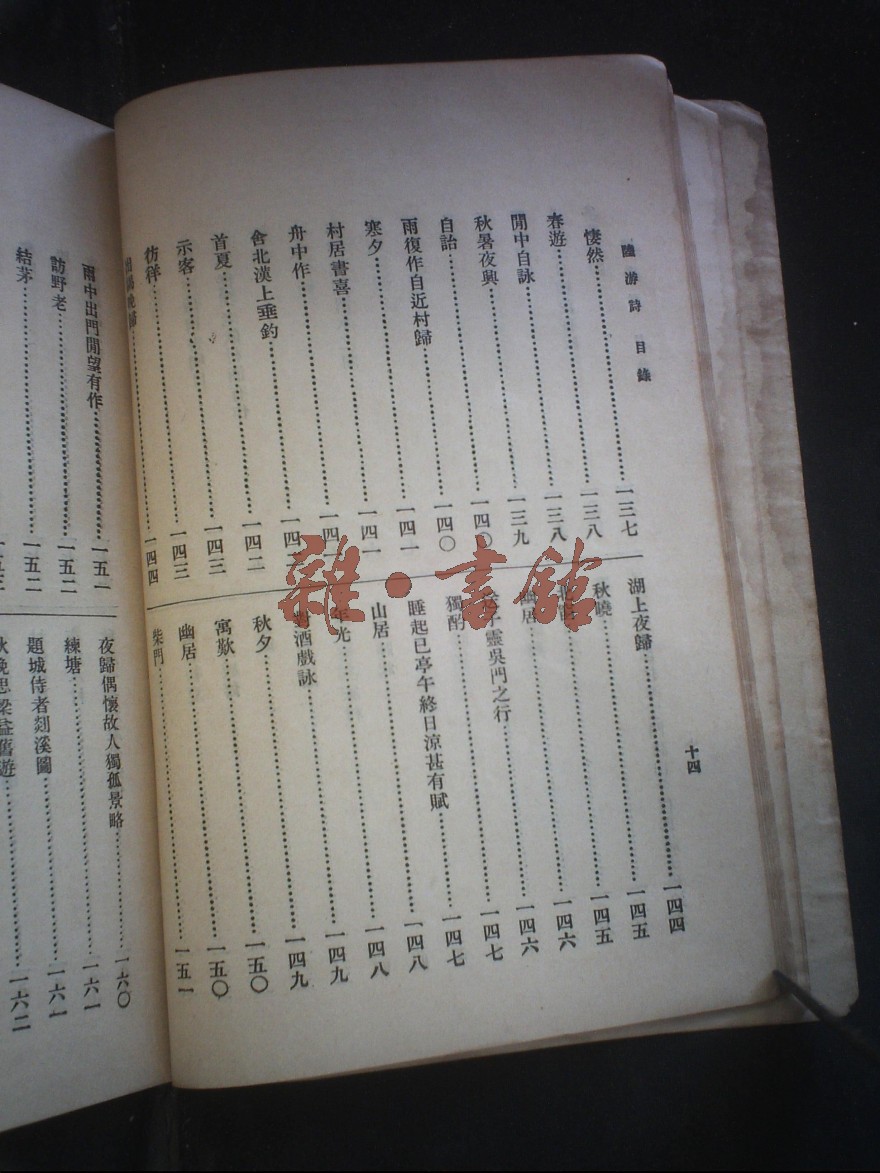 陸游詩 目錄
悽然一三七
春遊一三八
閒中自詠一三八
秋暑夜興一三九
自詒一四〇
雨復作自近村歸一四〇
寒夕一四一
村居書喜一四一
舟中作
舍北溪上垂釣
首夏一四二
示客一四三
彷徉一四三
晚歸一四四
湖上夜歸一四四
秋曉一四五
一四五
居一四六
子靈吳門之行一四六
獨酌一四七
睡起已亭午終日涼甚有賦一四七
山居一四八
年光一四八
對酒戲詠一四九
秋夕一四九
寓歎一五〇
幽居一五〇
柴門一五一
十四
雨中出門閒望有作一五一
訪野老一五二
結茅一五二
夜歸偶懷故人獨孤景略一六〇
練塘一六一
題城侍者剡溪圖一六一
秋晚思梁益舊遊一六二
雜·書館